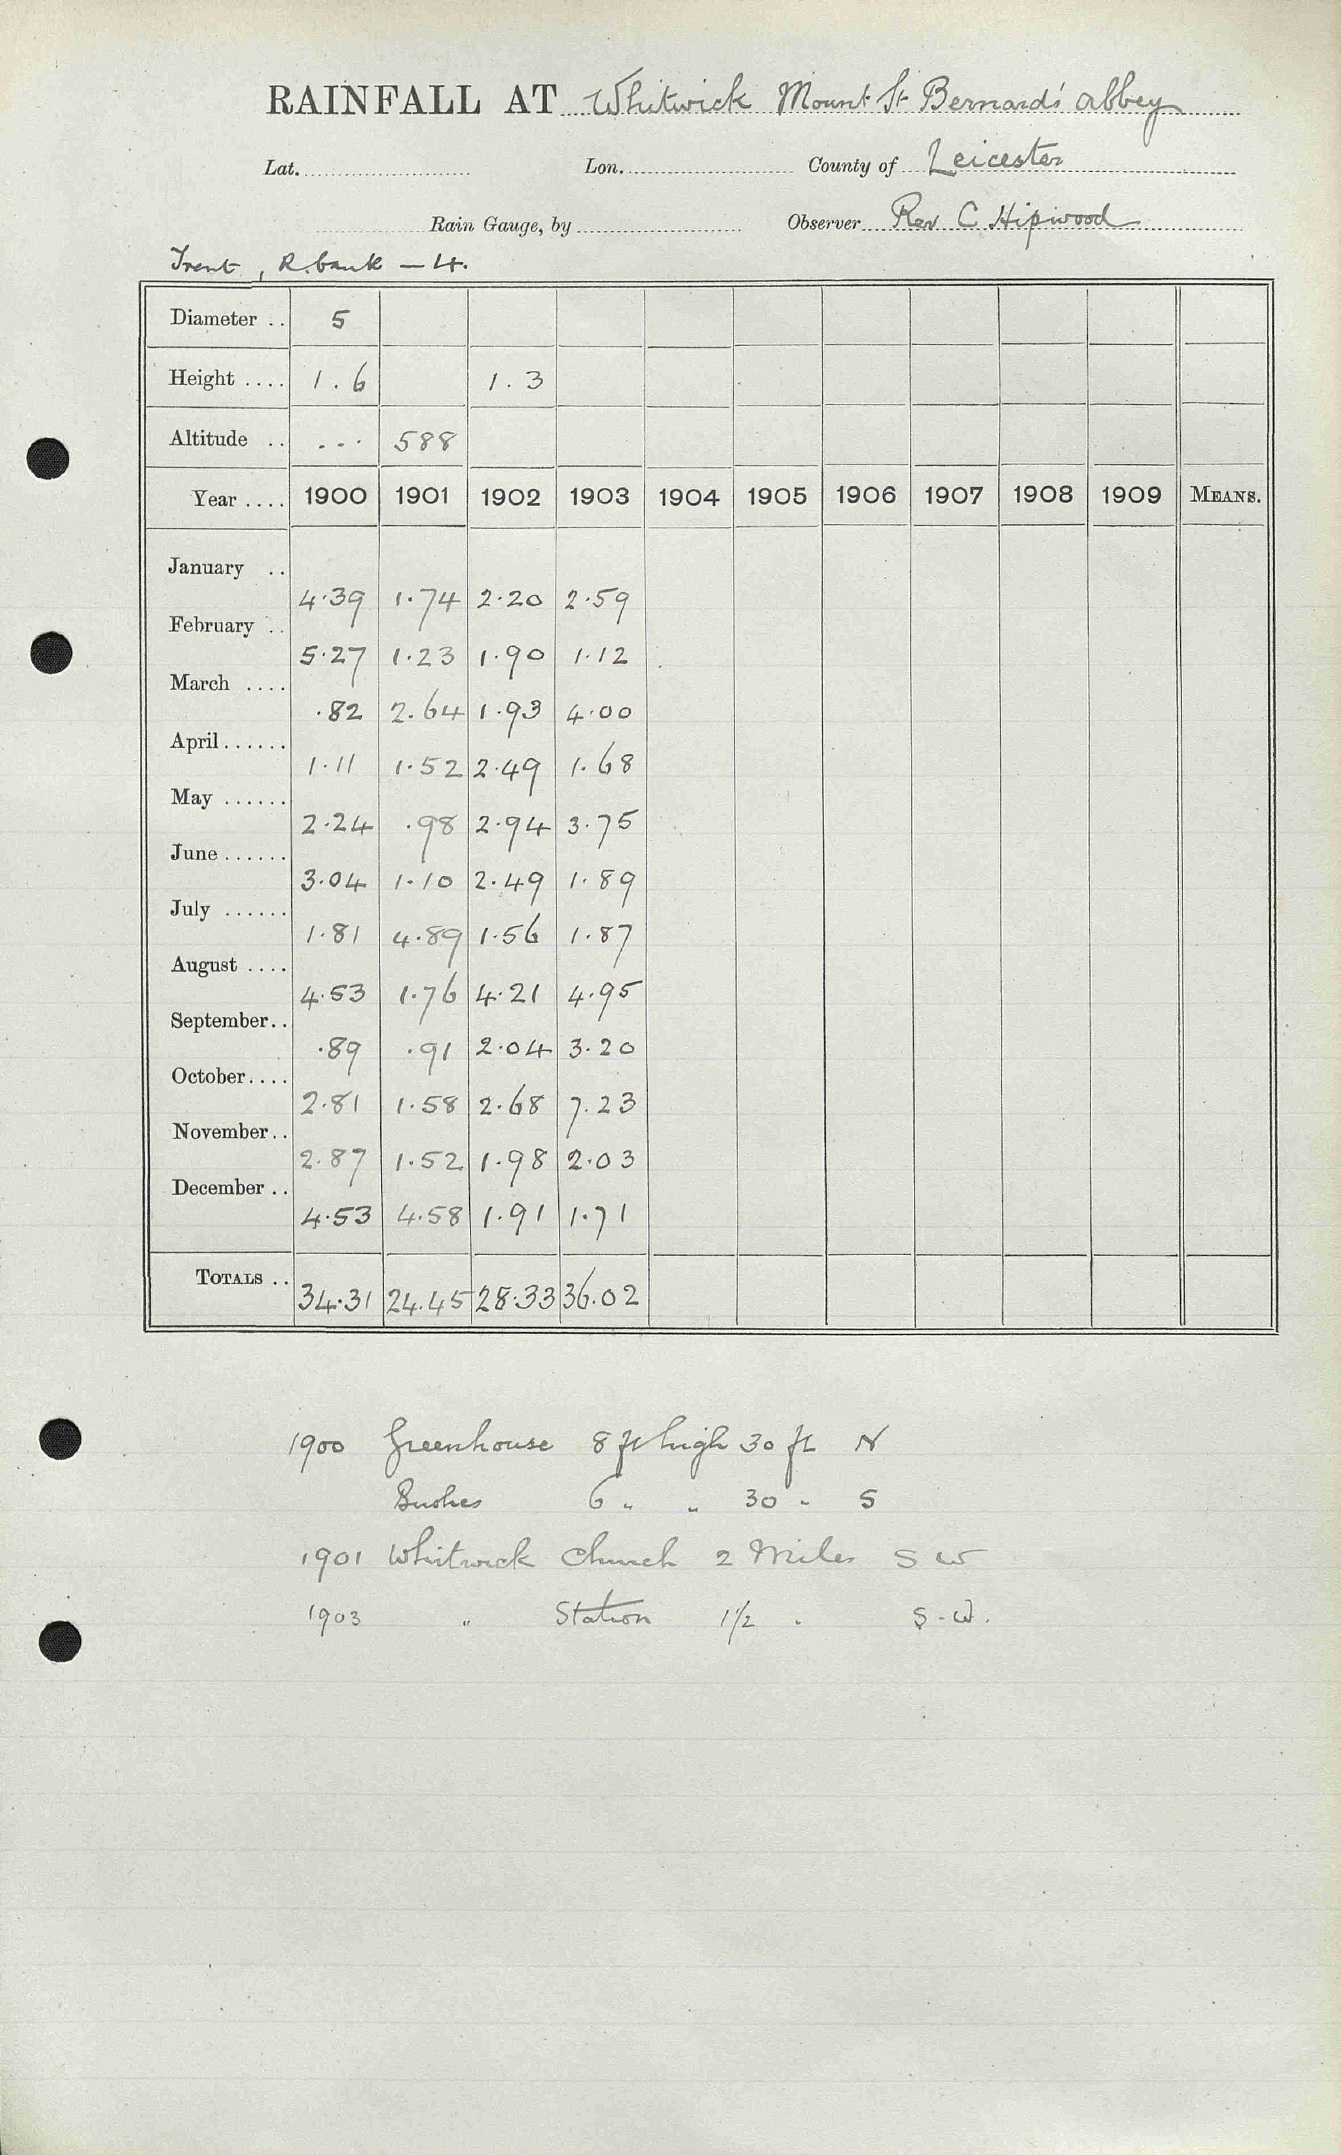 RAINFALL AT Whitwick Mount St Bernards' Abbey
Lat. Lon. County of Leicester
Rain Gauge, by Observer Rev C Hipwood
Trent, R. bank — 4.
Diameter .. 5
Height .... 1.6 1.3
Altitude .. ... 588
Year .... 1900 1901 1902 1903 1904 1905 1906 1907 1908 1909 MEANS.
January .. 4.39 1.74 2.20 2.59
February .. 5.27 1.23 1.90 1.12
March .... .82 2.64 1.93 4.00
April...... 1.11 1.52 2.49 1.68
May ...... 2.24 .98 2.94 3.75
June ...... 3.04 1.10 2.49 1.89
July ...... 1.81 4.89 1.56 1.87
August .... 4.53 1.76 4.21 4.95
September.. .89 .91 2.04 3.20
October.... 2.81 1.58 2.68 7.23
November.. 2.87 1.52 1.98 2.03
December .. 4.53 4.58 1.91 1.71
TOTALS .. 34.31 24.45 28.33 36.02
1900 Greenhouse 8 ft high 30 ft N
Bushes 6 " " 30 " S
1901 Whitwick Church 2 Miles S W
1903 " Station 1½ " S.W.